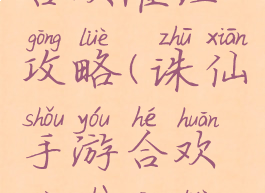 gōng lüè zhū xiān
攻略(诛仙
shǒu yóu hé huān
手游合欢